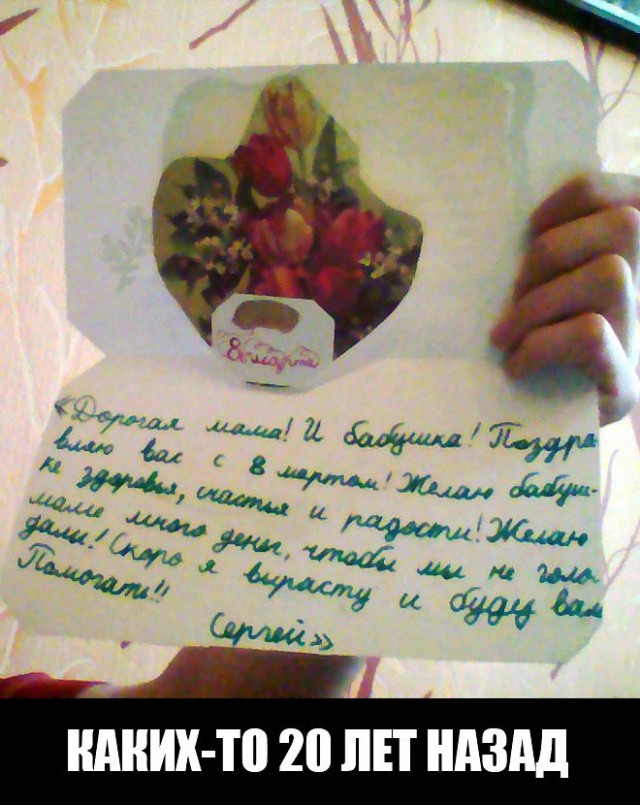 8 марта
«Дорогая мама! И бабушка! Поздра
вляю вас с 8 мартом! Желаю бабуш-
ке здоровья, счастья и радости! Желаю
маме много денег, чтобы мы не голо
дали! Скоро я вырасту и буду вам
Помогать!!
Сергей»
КАКИХ-ТО 20 ЛЕТ НАЗАД